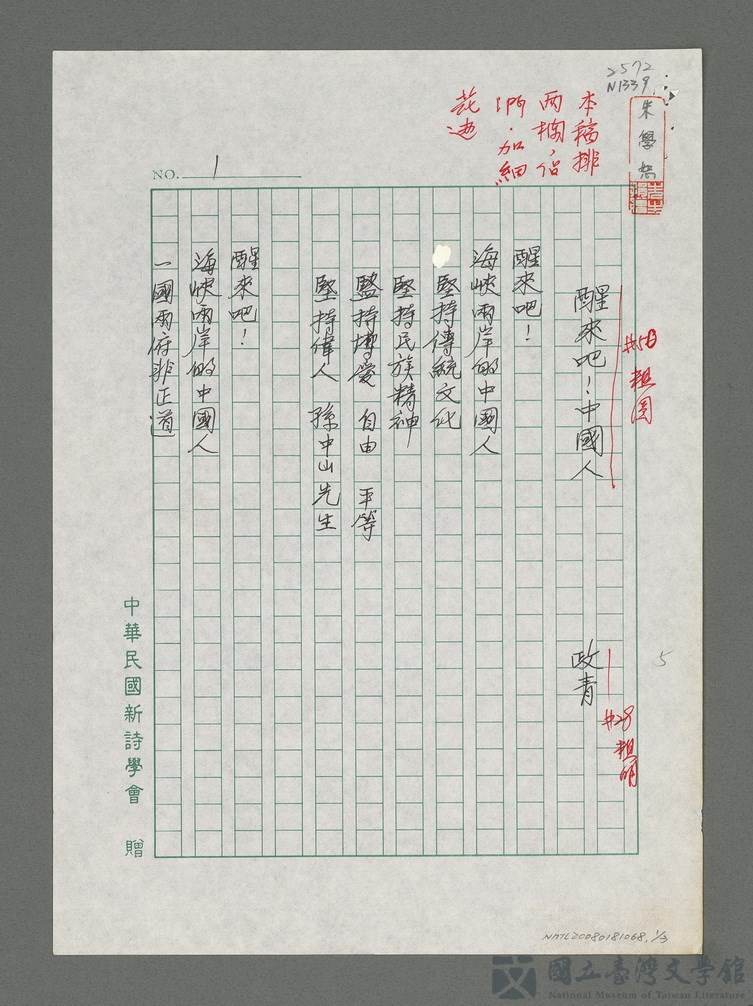 2572
N1339
朱學恕
本稿排
兩欄,佔
1門.加細
花边
NO. 1
醒來吧!中國人
#50 粗圓
政青
#28 粗明
5
醒來吧!
海峽兩岸的中國人
堅持傳統文化
堅持民族精神
堅持博愛 自由 平等
堅持偉人 孫中山先生
醒來吧!
海峽兩岸的中國人
一國兩府非正道
中華民國新詩學會 贈
NMTL20080181068, 1/3
國立臺灣文學館
National Museum of Taiwan Literature